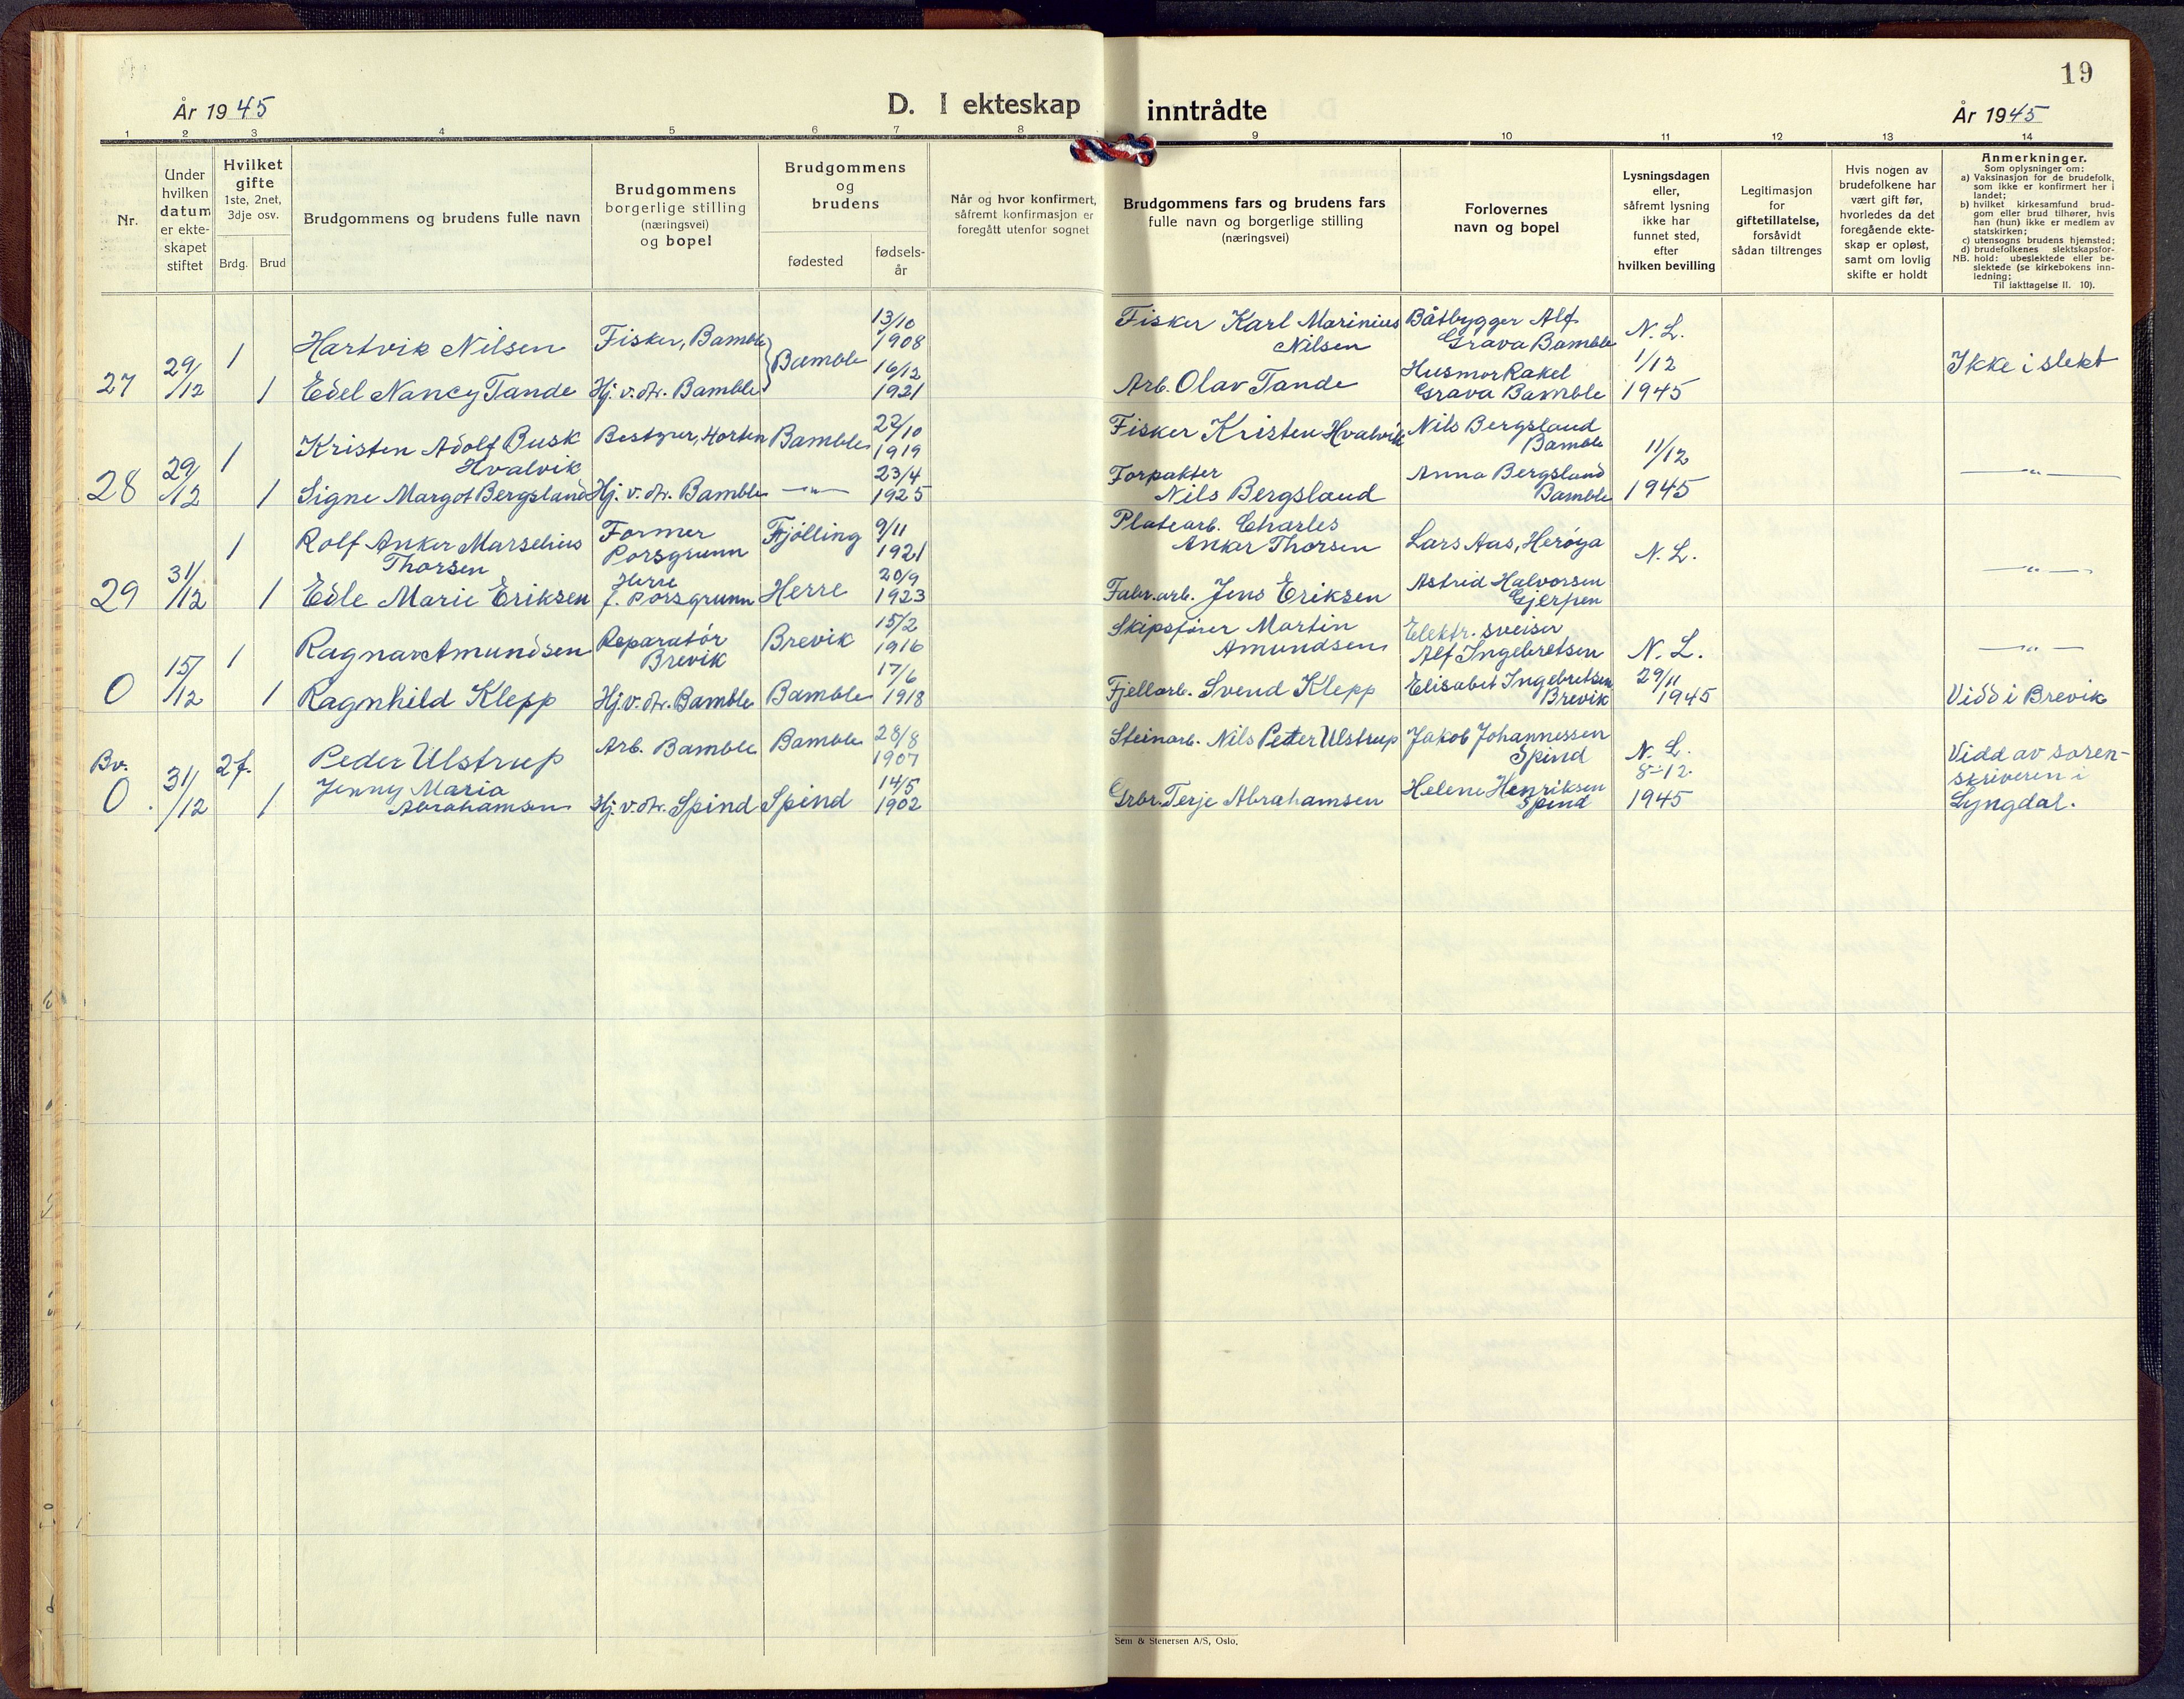 19
År 1945
D. I ekteskap inntrådte
År 1945
1 2 3 4 5 6 7 8 9 10 11 12 13 14
Nr.
Under
hvilken
datum
er ekte-
skapet
stiftet
Hvilket
gifte
1ste, 2net,
3dje osv.
Brdg. Brud
Brudgommens og brudens fulle navn
Brudgommens
borgerlige stilling
(næringsvei)
og bopel
Brudgommens
og
brudens
fødested
fødsels-
år
Når og hvor konfirmert,
såfremt konfirmasjon er
foregått utenfor sognet
Brudgommens fars og brudens fars
fulle navn og borgerlige stilling
(næringsvei)
Forlovernes
navn og bopel
Lysningsdagen
eller,
såfremt lysning
ikke har
funnet sted,
efter
hvilken bevilling
Legitimasjon
for
giftetillatelse,
forsåvidt
sådan tiltrenges
Hvis nogen av
brudefolkene har
vært gift før,
hvorledes da det
foregående ekte-
skap er opløst,
samt om lovlig
skifte er holdt
Anmerkninger.
Som oplysninger om:
a) Vaksinasjon for de brudefolk,
som ikke er konfirmert her i
landet;
b) hvilket kirkesamfund brud-
gom eller brud tilhører, hvis
han (hun) ikke er medlem av
statskirken;
c) utensogns brudens hjemsted;
d) brudefolkenes slektskapsfor-
NB. hold: ubeslektede eller be-
slektede (se kirkebokens inn-
ledning;
Til iakttagelse II. 10).
27
29/12
1
Hartvik Nilsen
Fisker, Bamble
Bamble
13/10
1908
Fisker Karl Marinius
Nilsen
Båtbygger Alf
Grava Bamble
N. L.
1/12
1945
Ikke i slekt
1
Edel Nancy Tande
Hj. v. dr. Bamble
16/12
1921
Arb. Olav Tande
Husmor Rakel
Grava Bamble
28
29/12
1
Kristen Adolf Busk
Hvalvik
Bestyrer, Horten
Bamble
22/10
1919
Fisker Kristen Hvalvik
Nils Bergsland
Bamble
11/12
1945
—"—
1
Signe Margot Bergsland
Hj. v. dr. Bamble
—"—
23/4
1925
Forpakter
Nils Bergsland
Anna Bergsland
Bamble
29
31/12
1
Rolf Anker Marselius
Thorsen
Former
Porsgrunn
Fjölling
9/11
1921
Platearb. Charles
Anker Thorsen
Lars Aas, Herøya
N. L.
—"—
1
Edle Marie Eriksen
Herre
f. Porsgrunn
Herre
20/9
1923
Fabr.arb. Jens Eriksen
Astrid Halvorsen
Gjerpen
0
15/12
1
Ragnar Amundsen
Reparatör
Brevik
Brevik
15/2
1916
Skipsfører Martin
Amundsen
Elektr. sveiser
Alf Ingebretsen
N. L.
29/11
1945
—"—
1
Ragnhild Klepp
Hj. v. dr. Bamble
Bamble
17/6
1918
Fjellarb. Svend Klepp
Elisabet Ingebretsen
Brevik
Vidd i Brevik
Bv.
0
31/12
2 f.
Peder Ulstrup
Arb. Bamble
Bamble
28/8
1907
Steinarb. Nils Petter Ulstrup
Jakob Johannessen
Spind
N. L.
8-12.
1945
Vidd av soren-
skriveren i
Lyngdal.
1
Jenny Maria
Abrahamsen
Hj. v. dr. Spind
Spind
14/5
1902
Grbr. Terje Abrahamsen
Helene Henriksen
Spind
Sem & Stenersen A/S, Oslo.